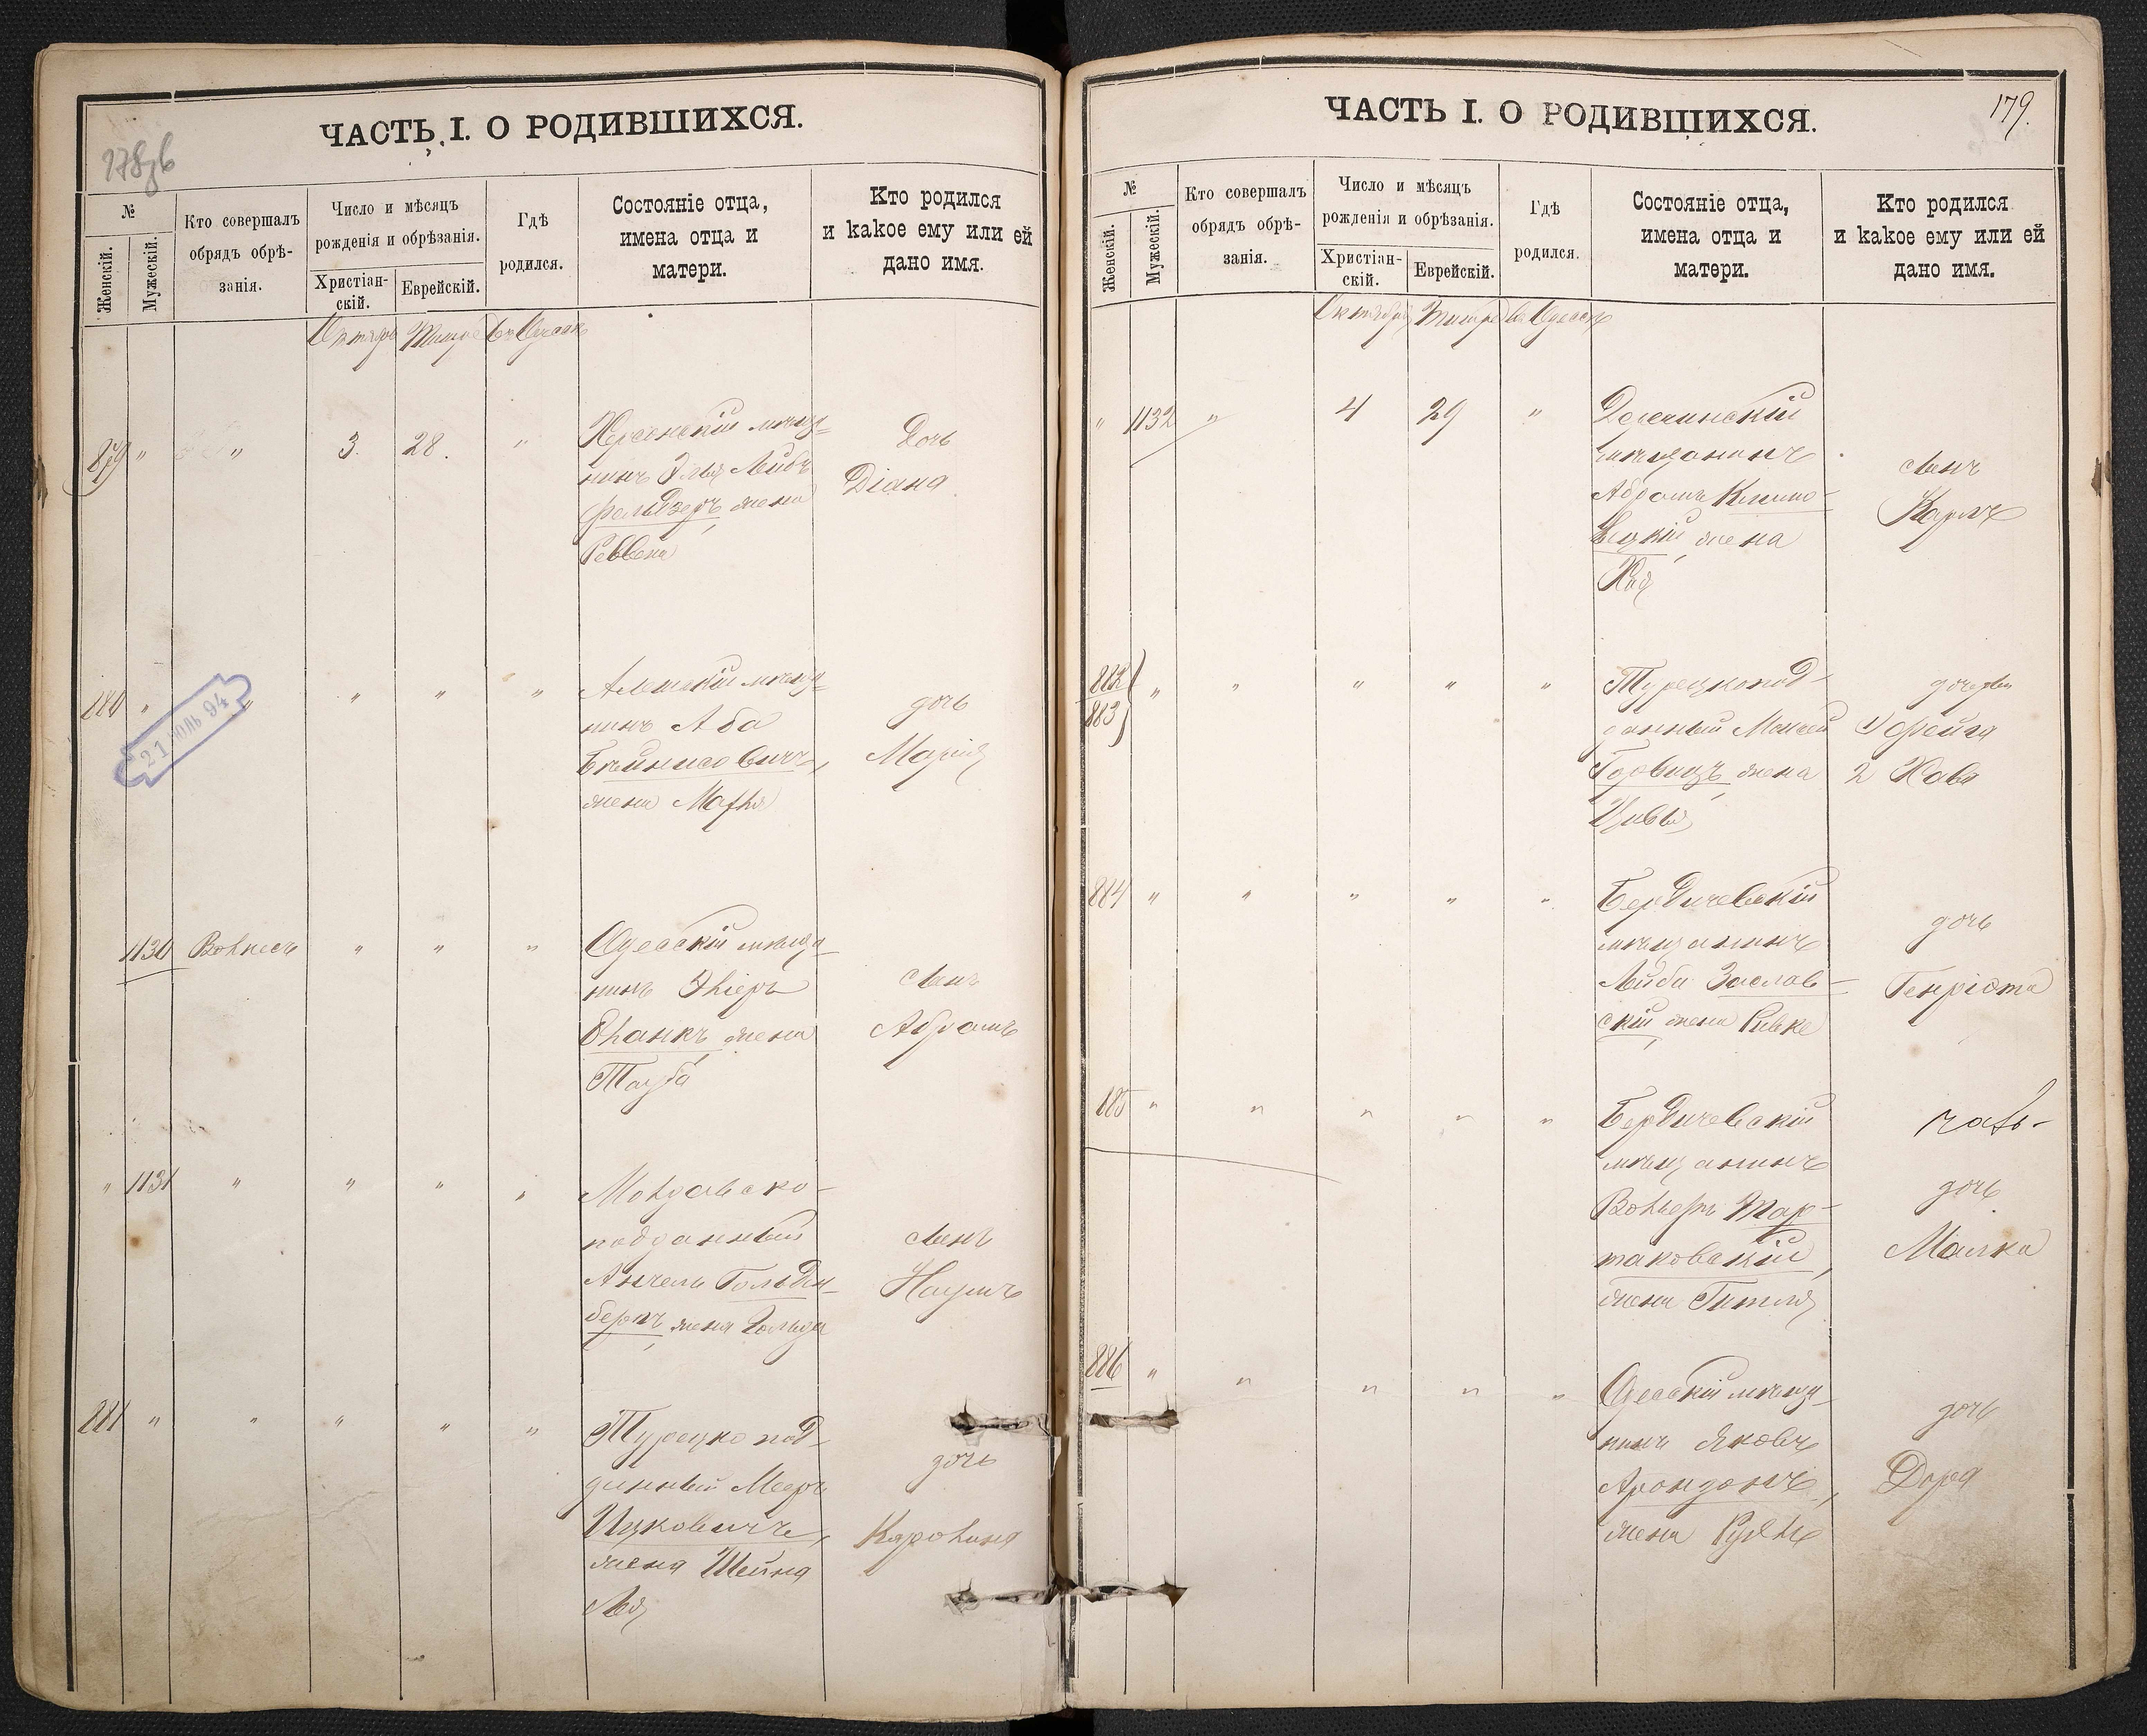 ЧАСТЬ I. О РОДИВШИХСЯ.
178об
№
Женскій.
Мужескій.
Кто совершалъ
обрядъ обрѣ-
занія.
Число и мѣсяцъ
рожденія и обрѣзанія.
Христіан-
скій.
Еврейскій.
Гдѣ
родился.
Состояніе отца,
имена отца и
матери.
Кто родился
и какое ему или ей
дано имя.
Октября Тишре въ Одессѣ
879 " " 3. 28. "
Херсонскій мѣща-
нинъ Эля Лейбъ
Фельдзеръ, жена
Ревека
Дочь
Діана
880 " " " " "
21 ІЮЛЬ 94
Алешскій мѣща-
нинъ Аба
жена Марья
дочь
Марія
1130 " " "
Одесскій мѣща-
нинъ
жена
Тауба
сынъ
Абрамъ
" 1131 " " " "
Молдавско-
подданный
Анчель Гольден-
бергъ, жена Гольда
сынъ
Наумъ
881 " " " " "
Турецко под-
данный Мееръ
Ицковичъ,
жена Шейна
Лея
дочь
Каролина
ЧАСТЬ I. О РОДИВШИХСЯ.
179.
№
Женскій.
Мужескій.
Кто совершалъ
обрядъ обрѣ-
занія.
Число и мѣсяцъ
рожденія и обрѣзанія.
Христіан-
скій.
Еврейскій.
Гдѣ
родился.
Состояніе отца,
имена отца и
матери.
Кто родился
и какое ему или ей
дано имя.
Октября Тишре въ Одессѣ
" 1132 " 4 29 "
мѣщанинъ
Абрамъ Климо-
вецкій, жена
Хая
сынъ
Карлъ
882
883 " " " " "
Турецкопод-
данный Моисей
жена
Цивья
1) Фейга
2 Хава
884 " " " " "
Бердичевскій
мѣщанинъ
Лейба Заслав-
скій, жена Ривке
дочь
Генріэта
885 " " " " "
Бердичевскій
мѣщанинъ
Вольфъ Тар-
таковскій,
жена Гитля
дочь
Малка
886 " " " " "
Одесскій мѣща-
нинъ Яковъ
жена
дочь
Дора